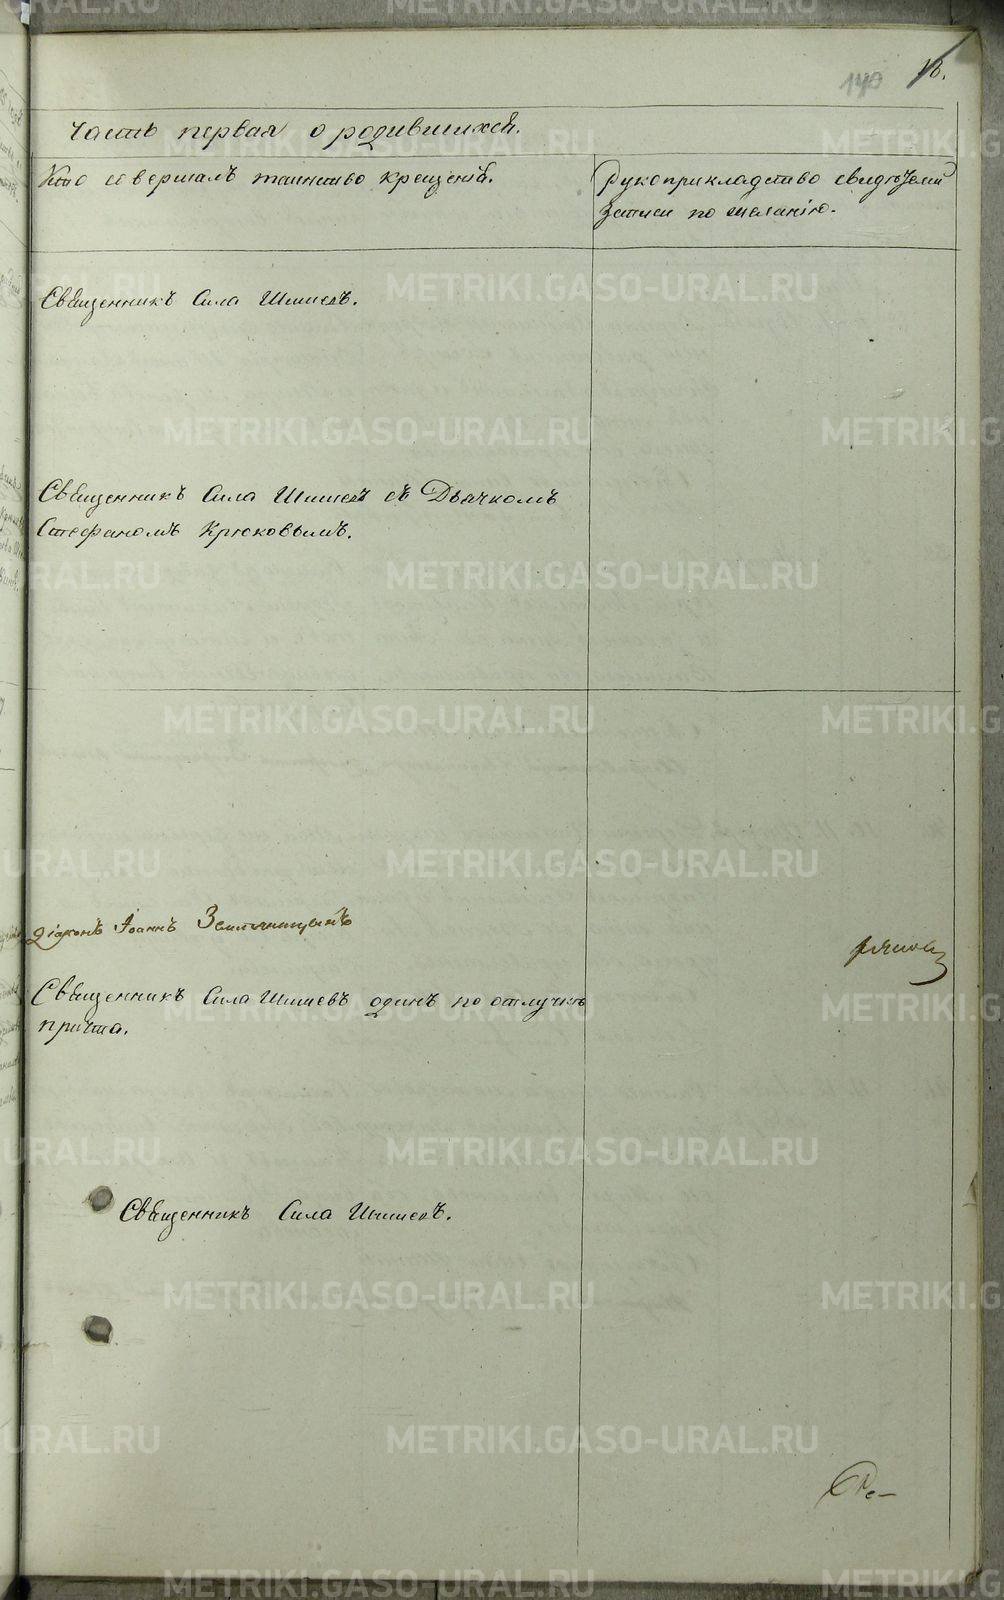 140 18.
Часть первая о родившихся.
Кто совершалъ таинство крещенія.
Рукоприкладство свидѣтелей
записи по желанію.
Священникъ Сила Шишевъ.
Священникъ Сила Шишевъ съ Дьячкомъ
Стефаномъ Крюковымъ.
Діаконъ Іоаннъ Земляницынъ
Священникъ Сила Шишевъ одинъ по отлучкѣ
причта.
Священникъ Сила Шишевъ.
METRIKI.GASO-URAL.RU